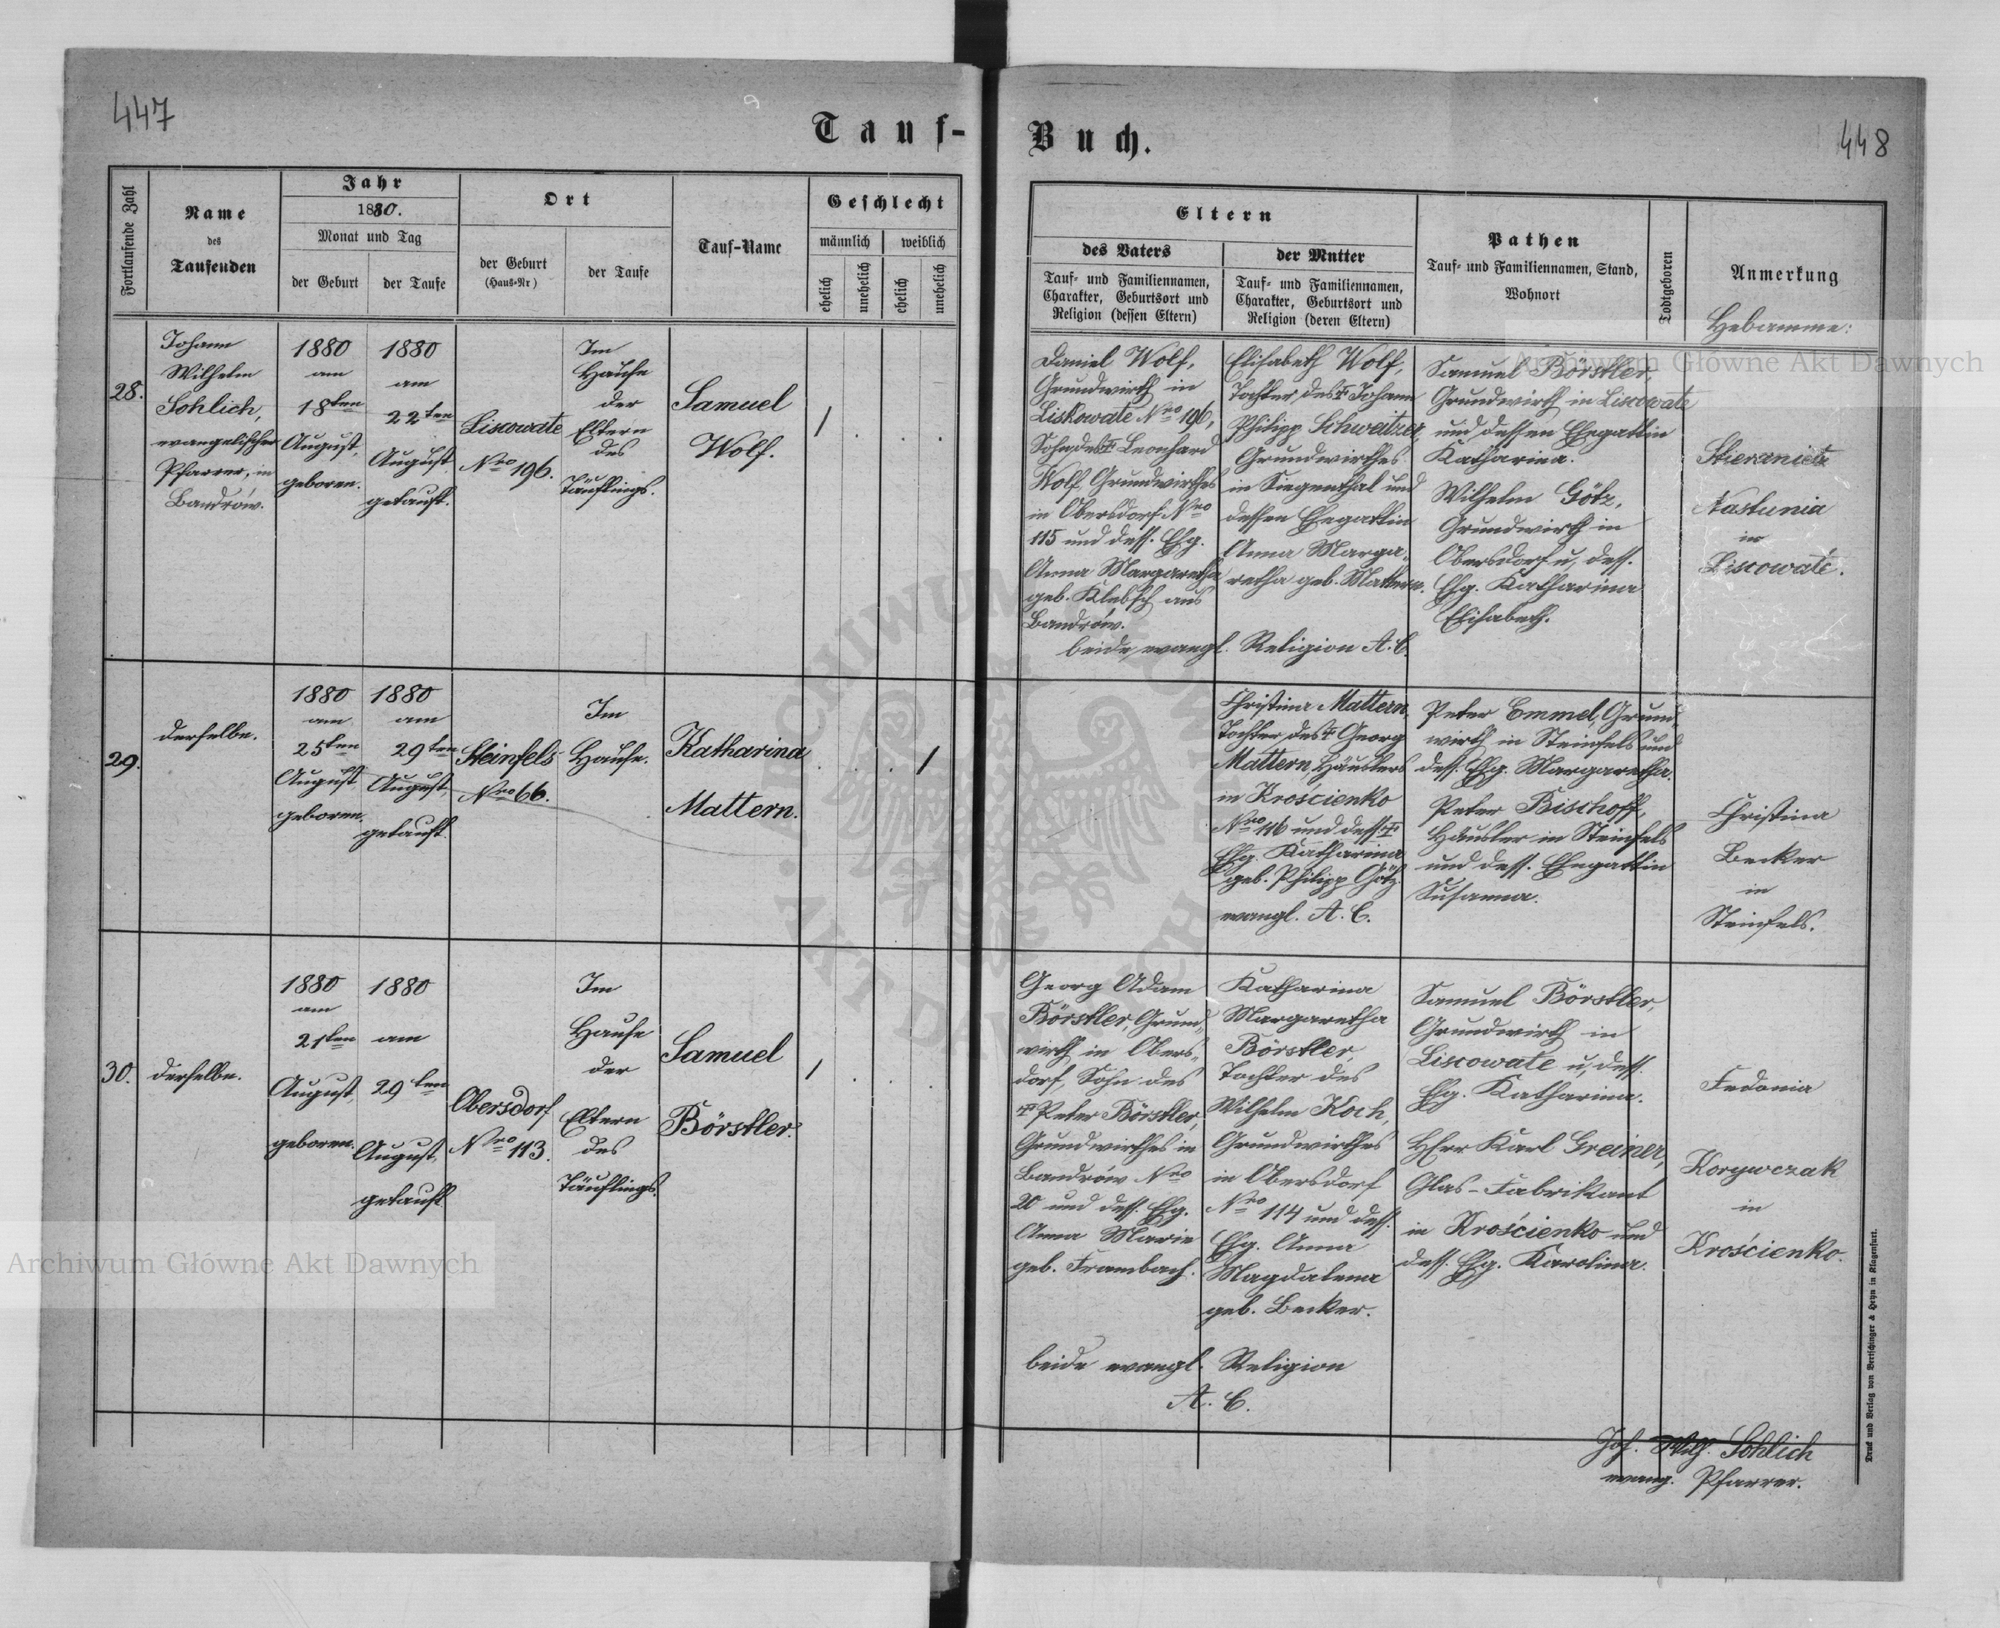 447
Tauf-
Fortlaufende Zahl
Name
des
Taufenden
Jahr
1880.
Monat und Tag
der Geburt
der Taufe
Ort
der Geburt
(Haus-Nr)
der Taufe
Tauf-Name
Geschlecht
männlich
weiblich
ehelich
unehelich
ehelich
unehelich
28.
Johann
Wilhelm
Sohlich,
evangelischer
Pfarrer, in
Bandrów.
1880
am
18ten
August,
geboren.
1880
am
22ten
August
getauft.
Liscowate
Nro 196.
Im
Hause
der
Eltern
des
Täuflings.
Samuel
Wolf.
1
29.
derselbe.
1880
am
25ten
August
geboren.
1880
am
29ten
August,
getauft.
Steinfels
Nro 66.
Im
Hause.
Katharina
Mattern.
1
30.
derselbe.
1880
am
21ten
August,
geboren.
1880
am
29ten
August,
getauft.
Obersdorf
Nro 113.
Im
Hause
der
Eltern
des
Täuflings.
Samuel
Börstler.
1
Buch.
448
Eltern
des Vaters
Tauf- und Familiennamen,
Charakter, Geburtsort und
Religion (dessen Eltern)
der Mutter
Tauf- und Familiennamen,
Charakter, Geburtsort und
Religion (deren Eltern)
Pathen
Tauf- und Familiennamen, Stand,
Wohnort
Todtgeboren
Anmerkung
Hebamme:
Daniel Wolf,
Grundwirth in
Liskowate Nro 196,
Sohn des † Leonhard
Wolf, Grundwirthes
in Obersdorf Nro
115 und dess. Ehg.
Anna Margaretha
geb. Klebsch aus
Bandrów.
Elisabeth Wolf,
Tochter des † Johann
Philipp Schweitzer,
Grundwirthes
in Siegenthal und
dessen Ehegattin
Anna Marga-
retha geb. Mattern.
beide evangl. Religion A. C.
Samuel Börstler,
Grundwirth in Liscowate
und dessen Ehegattin
Katharina.
Wilhelm Götz,
Grundwirth in
Obersdorf u. dess.
Ehg. Katharina
Elisabeth.
Nastunia
in
Liscowate.
Christina Mattern,
Tochter des † Georg
Mattern, Häuslers
in Krościenko
Nro 116 und dess. †
Ehg. Katharina
geb. Philipp Götz
evangl. A. C.
Peter Emmel, Grund-
wirth in Steinfels und
dess. Ehg. Margaretha.
Peter Bischoff,
Häusler in Steinfels
und dess. Ehegattin
Susanna.
Christina
Becker
in
Steinfels.
Georg Adam
Börstler, Grund-
wirth in Obers-
dorf, Sohn des
† Peter Börstler,
Grundwirthes in
Bandrów Nro
20 und dess. Ehg.
Anna Marie
geb. Frambach.
Katharina
Margaretha
Börstler,
Tochter des
Wilhelm Koch,
Grundwirthes
in Obersdorf
Nro 114 und dess.
Ehg. Anna
Magdalena
geb. Becker.
beide evangl. Religion
A. C.
Samuel Börstler,
Grundwirth in
Liscowate u. dess.
Ehg. Katharina.
Herr Karl Greiner,
Glas-Fabrikant
in Krościenko und
dess. Ehg. Karolina.
Fedonia
Korywczak
in
Krościenko.
Joh. Wilh. Sohlich
evang. Pfarrer.
Druck und Verlag von Bertschinger & Heyn in Klagenfurt.
Archiwum Główne Akt Dawnych
Archiwum Główne Akt Dawnych